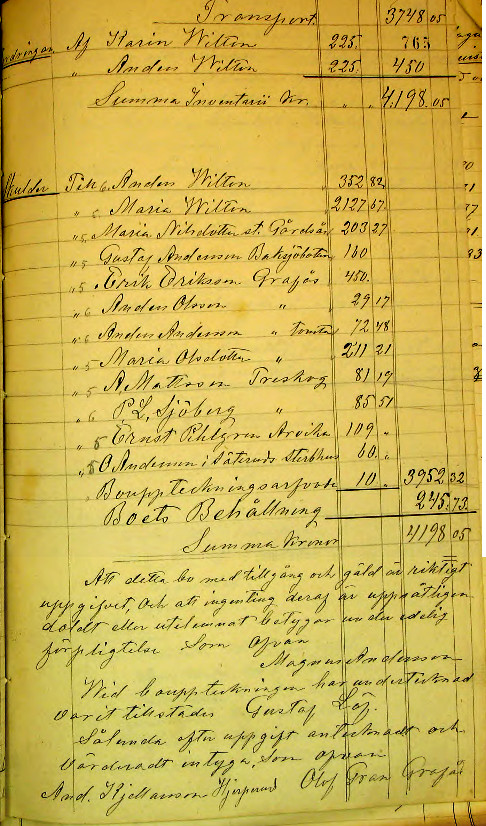 Transport 3748 05
Fordringar Af Karin Wilton 225. 765
" Anders Wilton 225. 450
Summa Inventarii Kr. " " 4198.05
Skulder Till Anders Wilton 352 82
" Maria Wilton 2127 67
" Maria Nilsdotter st. 203 27
" Gustaf Andersson 100
" Erik Eriksson Grafås 450.
" Anders Olsson " 29 17
" Anders Andersson " 72 48
" Maria Olsdotter " 211 21
" A. Mattsson Treskog 81 19
" P.L. Sjöberg " 85 51
" Ernst Pihlgren Arvika 109 "
" O Andersson i Säterud Sterbhus 60 "
" Bouppteckningsarfvode 10 " 3952 32
Boets Behållning 245.73.
Summa Kronor 4198 05
Att detta bo med tillgång och gäld är riktigt
uppgifvet, Och att ingenting deraf är uppsåtligen
doldt eller utelemnat betygar under edelig
förpligtelse Som ofvan
Magnus Andersson
Wid bouppteckningen har undertecknad
varit tillstädes Gustaf Löf.
Sålunda efter uppgift antecknadt och
Värderadt intyga, som ofvan
And. Kjellanson Olof Gran Grafås